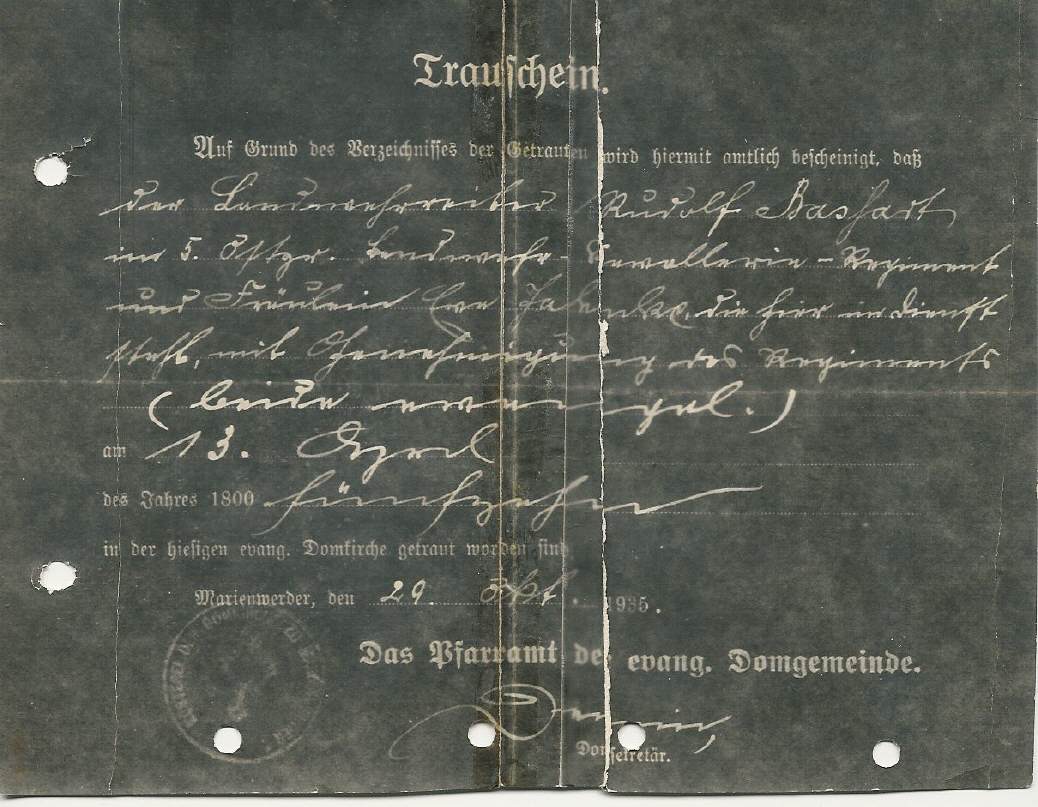 Trauschein.
Auf Grund des Verzeichnisses der Getrauten wird hiermit amtlich bescheinigt, daß
der Landwehrreiter Rudolf
im 5. Ostpr. Landwehr-Cavallerie-Regiment
und Fräulein Eva die hier in Dienst
steht, mit Genehmigung des Regiments
(beide evangel.)
am 13. April
des Jahres 1800 fünfzehn
in der hiesigen evang. Domkirche getraut worden sind
Marienwerder, den 29. Okt. 1935.
Das Pfarramt der evang. Domgemeinde.
Domsekretär.